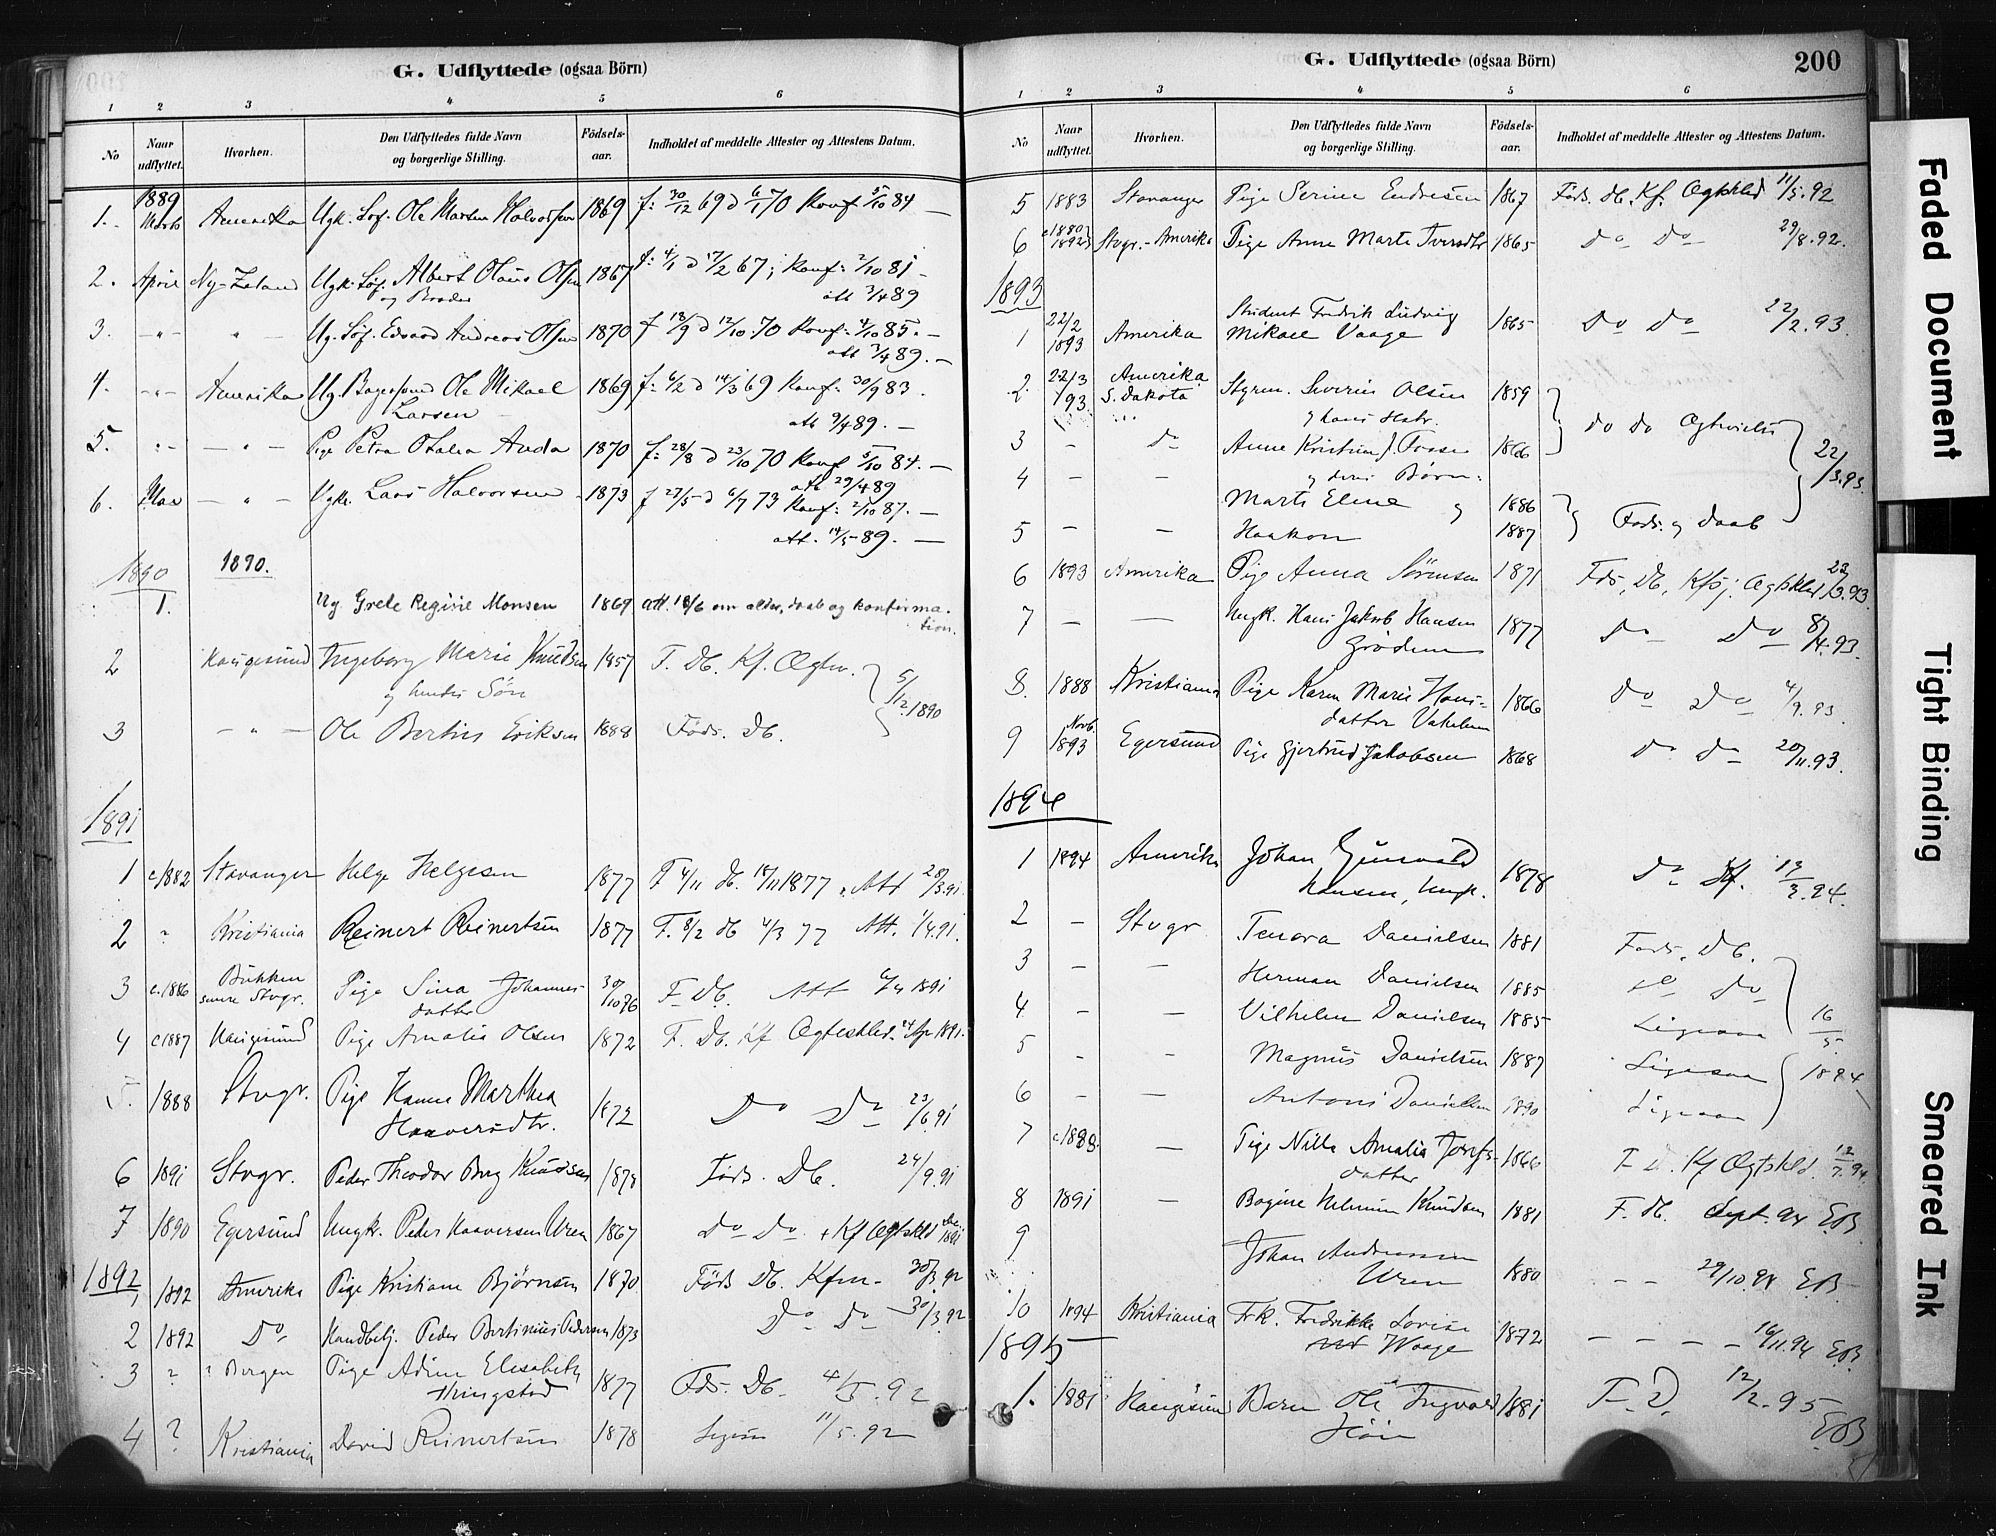 G. Udflyttede (ogsaa Börn)
1 2 3 4 5 6
No Naar udflyttet. Hvorhen. Den Udflyttedes fulde Navn og borgerlige Stilling. Födsels-aar. Indholdet af meddelte Attester og Attestens Datum.
1889
1. Marts Amerika Ugk. Løs. Ole Martin Halvorsen 1869 f: 30/12 69 d 6/1 70 Konf 5/10 84 —
2. April Ny-Zeland Ugk. Løs. Albert Olaus Olsen 1867 f: 4/1 d 17/2 67; Konf: 2/10 81 —
og Broder att 3/4 89
3. -"- " - Ug. Løs. Edvard Andreas Olsen 1870 f 13/9 d 12/10 70 Konf: 4/10 85. —
att 3/4 89. —
4. -"- Amerika Ug. Bagersvend Ole Mikael 1869 f: 6/2 d 14/3 69 Konf: 30/9 83.
Larsen att 9/4 89. —
5. -"- — " — Pige Petra Otalia Anda 1870 f: 28/8 d 23/10 70 Konf 5/10 84. —
att 29/4 89
6. Mai — " — Ugk. Lars Halvorsen 1873 f 27/5 d 6/7 73 Konf: 2/10 87. —
att. 14/5 89. —
1890 1890.
1. Ug Grete Regine Monsen 1869 att. 18/6 om alder, daab og konfirma-
tion.
2 Haugesund Ingeborg Marie Knudsen 1857 F. Db. Kf. Ægtv. 5/12 1890
og hendes Søn
3 — " — Ole Bertin Eriksen 1888 Føds. Db.
1891
1 c. 1882 Stavanger Helge Helgesen 1877 F 4/11 Db. 18/11 1877. Att 28/3 91.
2 ? Kristiania Reinert Reinertsen 1877 F. 8/2 db 4/3 77 Att. 1/4 91.
3 c. 1886 Bukken Pige Sina Johannes- 30/10 76 F. Db. Att 6/4 1891
senere Stvgr. datter
4 c 1887 Haugesund Pige Amalia Olsen 1872 F. Db. Kf Ægteskled. 14 Apr 1891.
5. 1888 Stvgr. Pige Hanne Marthea 1872 Do Do 23/6 91
Haaversdtr.
6 1891 Stvgr. Peder Theodor Berg Knudsen 1878 Føds. Db. 24/9. 91
7 1890 Egersund Ungk. Peder Haaversen Vren 1867 Do Do + Kf Ægtskled 1891
1892
1 1892 Amerika Pige Kristiane Bjørnsen 1870 Føds Db. Kfm- 30/3 92
2 1892 Do Handbetj. Peder Bertinius Pedersen 1873 Do Do 30/3 92
3 ? ? Bergen Pige Adine Elisabeth 1877 Fds. Db. 4/5. 92
Kringstad
4 ? Kristiania David Reinertsen 1878 Ligesaa 11/5. 92
G. Udflyttede (ogsaa Börn) 200
1 2 3 4 5 6
No Naar udflyttet. Hvorhen. Den Udflyttedes fulde Navn og borgerlige Stilling. Födsels-aar. Indholdet af meddelte Attester og Attestens Datum.
5 1883 Stavanger Pige Serine Endresen 1867 Føds. Db. Kf. Ægtskled 11/5. 92
6 c 1889 1892 Stvgr. - Amerika Pige Anne Marte 1865 Do Do 29/8. 92.
1893
1 22/2 1893 Amerika Student Fredrik Ludvig 1865 Do Do 22/2. 93.
Mikael Vaage
2 22/3 93 Amerika S. Dakota Styrm. Severin Olsen 1859
og hans Hstr. do do Ægtvielse
3 — Do Anne Kristine J. Fosse 1866 22/3. 93.
4 — — og deres Børn:
Marta Eline og 1886 Føds. og Daab
5 — — Haakon 1887
6 1893 Amerika Pige Anna Sørensen 1871 Fds, Db, Kfj. Ægtskled 22/3. 93.
7 — — Ungk. Hans Jakob Hansen 1877 Do Do 8/4. 93.
Grødem
8. 1888 Kristiania Pige Karen Marie Hans- 1866 Do Do 4/9. 93.
datter
9 Novb. 1893 Egersund Pige Gjertrud Jakobsen 1868 Do Do 20/11. 93.
1894
1 1894 Amerika Johan Gunvald 1878 Do Kf. 13/3. 94.
Hansen, Ungk.
2 — Stvgr Tenora Danielsen 1881 Føds. Db.
3 — — Herman Danielsen 1885 do Do
4 — — Vilhelm Danielsen 1885 Ligesaa 16/5.
5 — — Magnus Danielsen 1887 Ligesaa 1894
6 — — Antoni Danielsen 1890 Ligesaa
7 c. 1888. — Pige Nille Amalia Josefs- 1866 F. D. Kf Ægtskled. 12/7. 94.
datter
8 1891 — Bogine Helmine Knudsen 1881 F. Db. Sept. 94 EB
9 Johan Andreassen 1880 — — 29/10. 94 EB
Vren
10 1894 Kristiania Frk. Fredrikke Lovise 1872 — — — 16/11. 94 EB
Waage
1895
1. 1881 Haugesund Barn Ole Ingvald 1881 F. D. 12/2. 95
Høie EB
Faded Document
Tight Binding
Smeared Ink